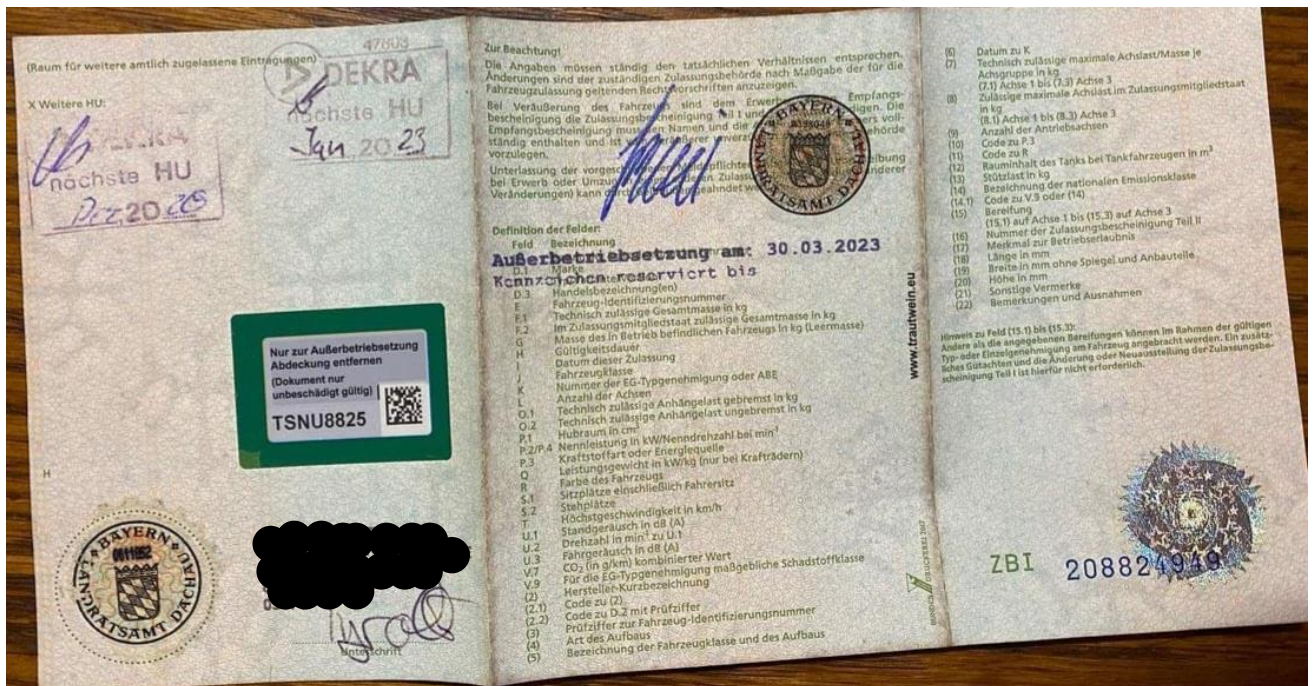 (Raum für weitere amtlich zugelassene Eintragungen)
X Weitere HU:
DEKRA
nächste HU
Dez. 20
47603
DEKRA
nächste HU
Jan 20 23
Nur zur Außerbetriebsetzung
Abdeckung entfernen
(Dokument nur
unbeschädigt gültig)
TSNU8825
H
BAYERN
LANDRATSAMT DACHAU
Unterschrift
Zur Beachtung!
Die Angaben müssen ständig den tatsächlichen Verhältnissen entsprechen.
Änderungen sind der zuständigen Zulassungsbehörde nach Maßgabe der für die
Fahrzeugzulassung geltenden Rechtsvorschriften anzuzeigen.
Bei Veräußerung des Fahrzeugs sind dem Erwerber Empfangs-
bescheinigung die Zulassungsbescheinigung Teil I und Die
Empfangsbescheinigung Namen und die voll-
ständig enthalten und ist vom Veräußerer
vorzulegen.
Unterlassung der vorgeschriebenen
bei Erwerb oder Umzug anderer
Veränderungen) kann geahndet
BAYERN
LANDRATSAMT DACHAU
Definition der Felder:
Feld Bezeichnung
Außerbetriebsetzung am: 30.03.2023
D.1 Marke
Kennzeichen reserviert bis
D.3 Handelsbezeichnung(en)
E Fahrzeug-Identifizierungsnummer
F.1 Technisch zulässige Gesamtmasse in kg
F.2 Im Zulassungsmitgliedstaat zulässige Gesamtmasse in kg
G Masse des in Betrieb befindlichen Fahrzeugs in kg (Leermasse)
H Gültigkeitsdauer
I Datum dieser Zulassung
J Fahrzeugklasse
K Nummer der EG-Typgenehmigung oder ABE
L Anzahl der Achsen
O.1 Technisch zulässige Anhängelast gebremst in kg
O.2 Technisch zulässige Anhängelast ungebremst in kg
P.1 Hubraum in cm³
P.2/P.4 Nennleistung in kW/Nenndrehzahl bei min⁻¹
P.3 Kraftstoffart oder Energiequelle
Q Leistungsgewicht in kW/kg (nur bei Krafträdern)
R Farbe des Fahrzeugs
S.1 Sitzplätze einschließlich Fahrersitz
S.2 Stehplätze
T Höchstgeschwindigkeit in km/h
U.1 Standgeräusch in dB (A)
U.2 Drehzahl in min⁻¹ zu U.1
U.3 Fahrgeräusch in dB (A)
V.7 CO₂ (in g/km) kombinierter Wert
V.9 Für die EG-Typgenehmigung maßgebliche Schadstoffklasse
(2) Hersteller-Kurzbezeichnung
(2.1) Code zu (2)
(2.2) Code zu D.2 mit Prüfziffer
(3) Prüfziffer zur Fahrzeug-Identifizierungsnummer
(4) Art des Aufbaus
(5) Bezeichnung der Fahrzeugklasse und des Aufbaus
www.trautwein.eu
(6) Datum zu K
(7) Technisch zulässige maximale Achslast/Masse je
Achsgruppe in kg
(7.1) Achse 1 bis (7.3) Achse 3
(8) Zulässige maximale Achslast im Zulassungsmitgliedstaat
in kg
(8.1) Achse 1 bis (8.3) Achse 3
(9) Anzahl der Antriebsachsen
(10) Code zu P.3
(11) Code zu R
(12) Rauminhalt des Tanks bei Tankfahrzeugen in m³
(13) Stützlast in kg
(14) Bezeichnung der nationalen Emissionsklasse
(14.1) Code zu V.9 oder (14)
(15) Bereifung
(15.1) auf Achse 1 bis (15.3) auf Achse 3
(16) Nummer der Zulassungsbescheinigung Teil II
(17) Merkmal zur Betriebserlaubnis
(18) Länge in mm
(19) Breite in mm ohne Spiegel und Anbauteile
(20) Höhe in mm
(21) Sonstige Vermerke
(22) Bemerkungen und Ausnahmen
Hinweis zu Feld (15.1) bis (15.3):
Andere als die angegebenen Bereifungen können im Rahmen der gültigen
Typ- oder Einzelgenehmigung am Fahrzeug angebracht werden. Ein zusätz-
liches Gutachten und die Änderung oder Neuausstellung der Zulassungsbe-
scheinigung Teil I ist hierfür nicht erforderlich.
ZBI 208824949